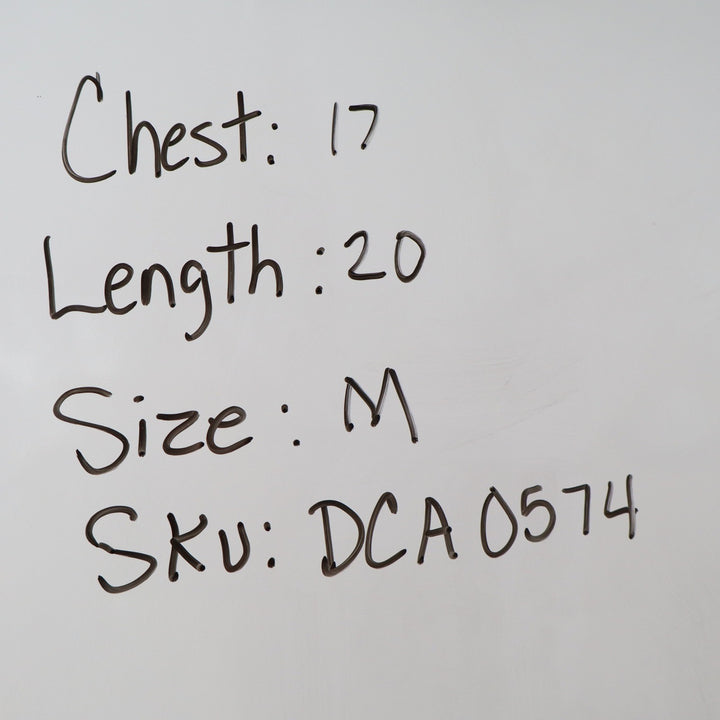 Chest: 17
Length: 20
Size: M
SKU: DCA 0574